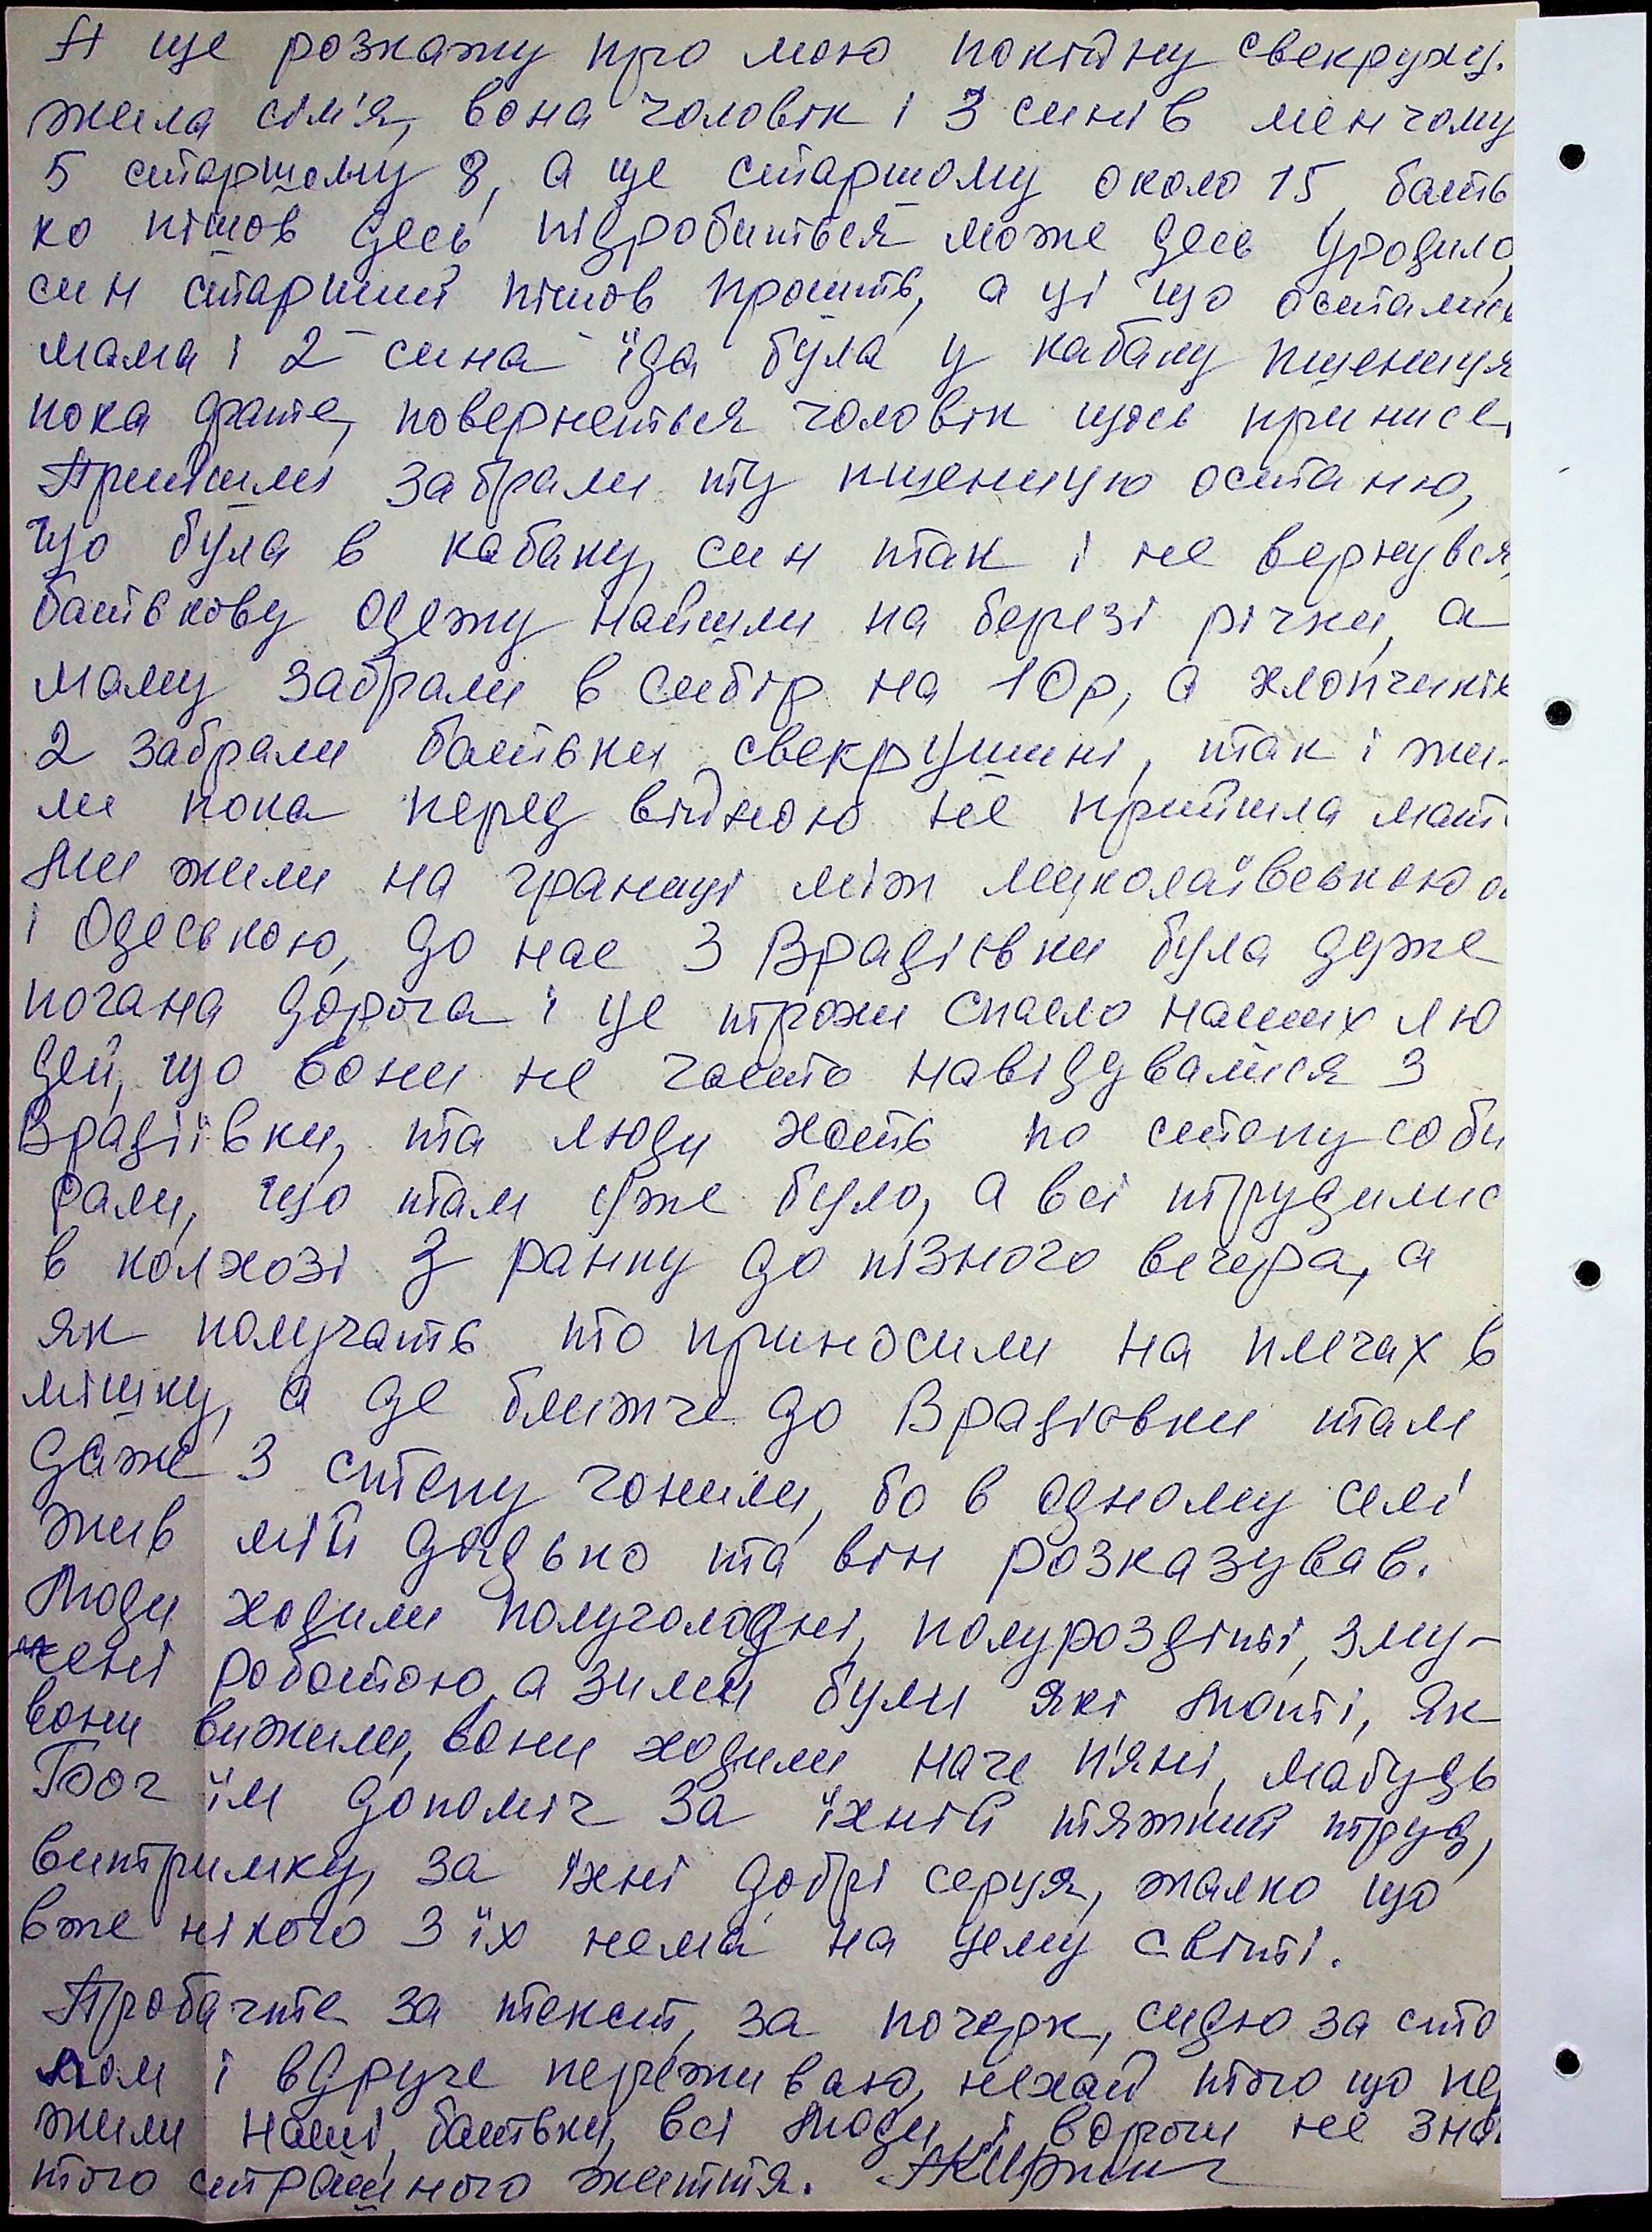 А ще розкажу про мою покійну свекруху.
жила сім'я, вона чоловік і 3 синів менчому
5 старшому 8, а ще старшому около 15, бать
ко пішов десь підробиться може десь уродило,
син старший пішов просить, а ці що остались
мама і 2 сина їда була у кабаку пшениця
пока хватe, повернеться чоловік щось принисе.
Прийшли забрали ту пшеницю останю,
що була в кабаку, син так і не вернувся,
батькову одежу найшли на березі річки, а
маму забрали в сибір на 10р, а хлопчиків
2 забрали батьки свекрушині, так і жи-
ли пока перед війною не прийшла мати
Ми жили на границі між миколаївською о
і Одеською, до нас з Врадієвки була дуже
погана дорога і це трохи спасло наших лю
дей, що вони не часто навідувалися з
Врадіївки, та люди хоть по степу соби
рали, що там уже було, а всі трудилис
в колхозі з ранку до пізного вечера, а
як получать то приносили на плечах в
мішку, а де ближче до Врадієвки там
даже з степу гонили, бо в одному селі
жив мій дядько та він розказував.
Люди ходили полуголодні, полуроздіті, зму-
чені роботою, а зими були які люті, як
вони вижили, вони ходили наче п'яні, мабудь
Бог їм допоміг за їхній тяжкий труд,
витримку, за їхні добрі серця, жалко що
вже нікого з їх нема на цему світі.
Пробачте за текст, за почерк, сидю за сто
лом і вдруге переживаю, нехай того що пе
жили наші, батьки, всі люди і вороги не зна
того страшного життя.